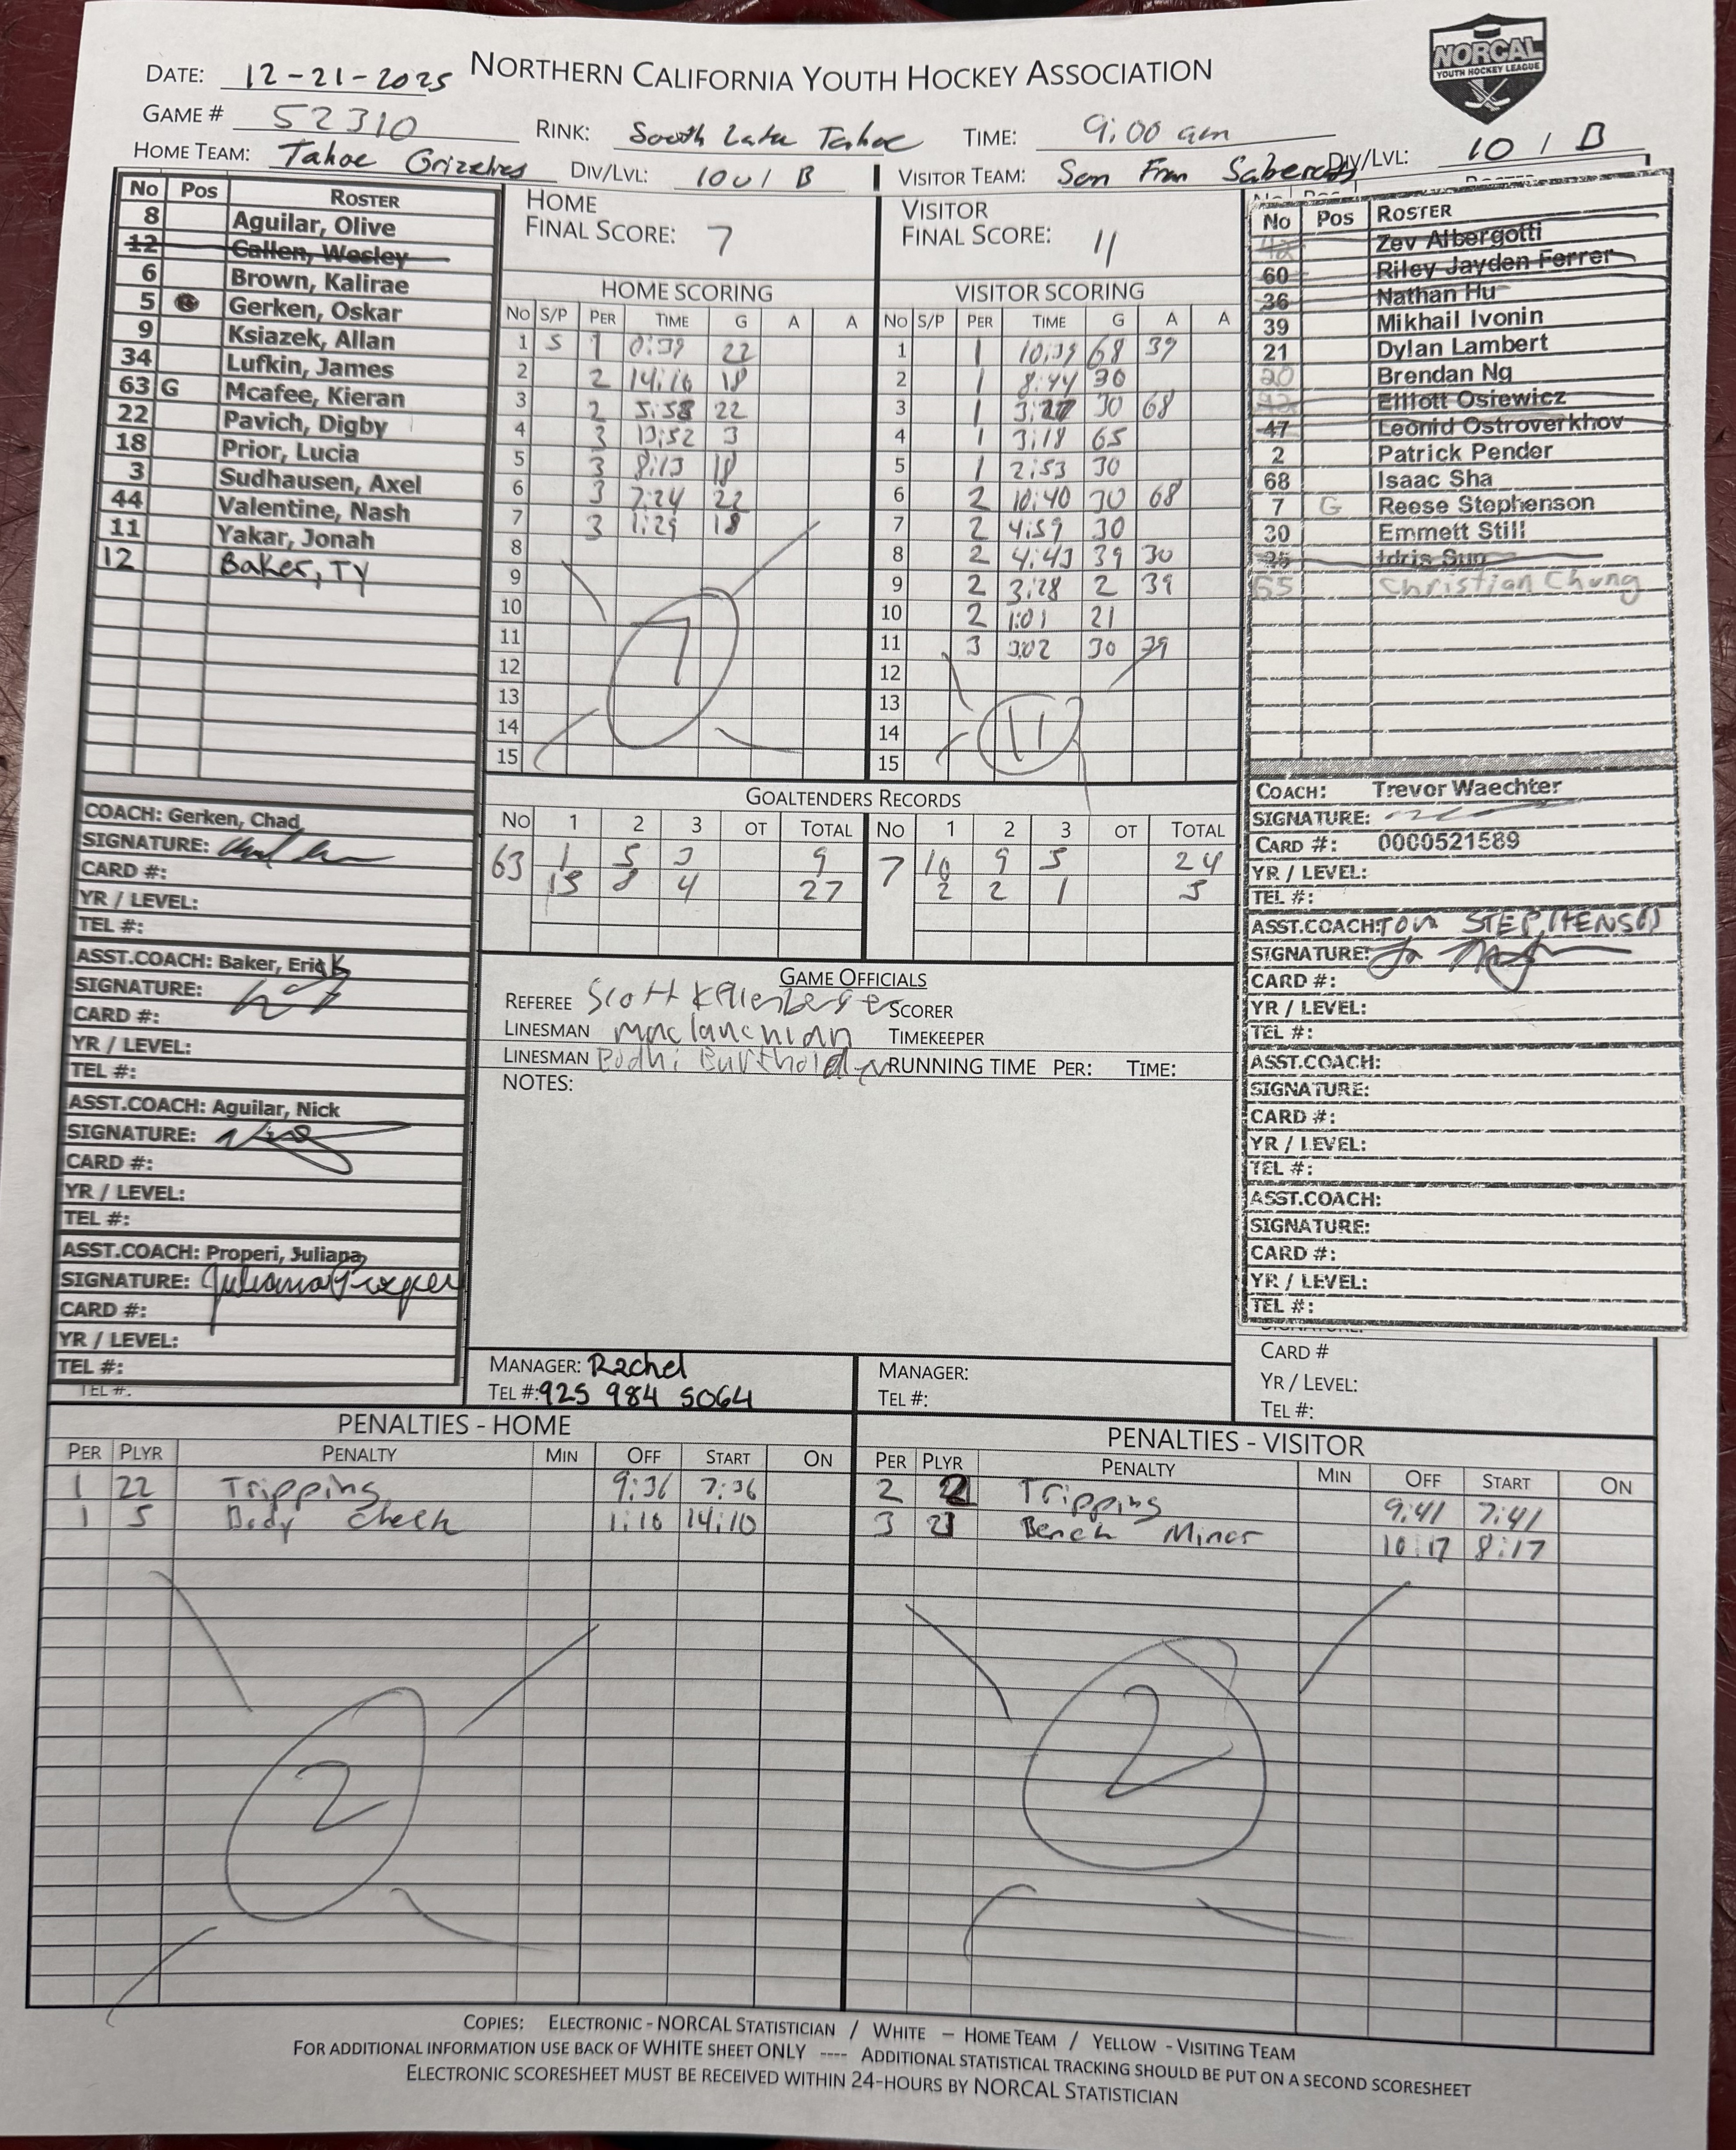 NORTHERN CALIFORNIA YOUTH HOCKEY ASSOCIATION
NORCAL
YOUTH HOCKEY LEAGUE
DATE: 12-21-2025
GAME # 52310 RINK: South Lake Tahoe TIME: 9:00 am
HOME TEAM: Tahoe Grizzlies DIV/LVL: 10U / B VISITOR TEAM: San Fran Sabercats DIV/LVL: 10 / B
No Pos ROSTER
8 Aguilar, Olive
12 Callen, Wesley
6 Brown, Kalirae
5 Gerken, Oskar
9 Ksiazek, Allan
34 Lufkin, James
63 G Mcafee, Kieran
22 Pavich, Digby
18 Prior, Lucia
3 Sudhausen, Axel
44 Valentine, Nash
11 Yakar, Jonah
12 Baker, Ty
COACH: Gerken, Chad
SIGNATURE:
CARD #:
YR / LEVEL:
TEL #:
ASST.COACH: Baker, Erick
SIGNATURE:
CARD #:
YR / LEVEL:
TEL #:
ASST.COACH: Aguilar, Nick
SIGNATURE:
CARD #:
YR / LEVEL:
TEL #:
ASST.COACH: Properi, Juliana
SIGNATURE: Juliana Properi
CARD #:
YR / LEVEL:
TEL #:
TEL #:
HOME
FINAL SCORE: 7
HOME SCORING
No S/P PER TIME G A A
1 S 1 0:39 22
2 2 14:16 18
3 2 5:58 22
4 3 13:52 3
5 3 8:13 18
6 3 7:24 22
7 3 1:29 18
8
9
10
11
12
13
14
15
7
VISITOR
FINAL SCORE: 11
VISITOR SCORING
No S/P PER TIME G A A
1 1 10:39 68 39
2 1 8:44 30
3 1 3:27 30 68
4 1 3:18 65
5 1 2:53 30
6 2 10:40 30 68
7 2 4:59 30
8 2 4:43 39 30
9 2 3:28 2 39
10 2 1:01 21
11 3 3:02 30 39
12
13
14
15
11
GOALTENDERS RECORDS
No 1 2 3 OT TOTAL No 1 2 3 OT TOTAL
63 1 5 3 9 7 10 9 5 24
15 8 4 27 2 2 1 5
GAME OFFICIALS
REFEREE Scott Kellenberger SCORER
LINESMAN maclanchlan TIMEKEEPER
LINESMAN Bodhi RUNNING TIME PER: TIME:
NOTES:
MANAGER: Rachel
TEL #: 925 984 5064
MANAGER:
TEL #:
No Pos ROSTER
Zev Albergotti
60 Riley Jayden Ferrer
36 Nathan Hu
39 Mikhail Ivonin
21 Dylan Lambert
20 Brendan Ng
Elliott Osiewicz
47 Leonid Ostroverkhov
2 Patrick Pender
68 Isaac Sha
7 G Reese Stephenson
30 Emmett Still
Idris Sun
65 Christian Chung
COACH: Trevor Waechter
SIGNATURE:
CARD #: 0000521589
YR / LEVEL:
TEL #:
ASST.COACH: TOM STEPHENSON
SIGNATURE:
CARD #:
YR / LEVEL:
TEL #:
ASST.COACH:
SIGNATURE:
CARD #:
YR / LEVEL:
TEL #:
ASST.COACH:
SIGNATURE:
CARD #:
YR / LEVEL:
TEL #:
CARD #
YR / LEVEL:
TEL #:
PENALTIES - HOME
PER PLYR PENALTY MIN OFF START ON
1 22 Tripping 9:36 7:36
1 5 Body Check 1:10 14:10
2
PENALTIES - VISITOR
PER PLYR PENALTY MIN OFF START ON
2 2 Tripping 9:41 7:41
3 21 Bench Minor 10:17 8:17
2
COPIES: ELECTRONIC - NORCAL STATISTICIAN / WHITE – HOME TEAM / YELLOW - VISITING TEAM
FOR ADDITIONAL INFORMATION USE BACK OF WHITE SHEET ONLY ---- ADDITIONAL STATISTICAL TRACKING SHOULD BE PUT ON A SECOND SCORESHEET
ELECTRONIC SCORESHEET MUST BE RECEIVED WITHIN 24-HOURS BY NORCAL STATISTICIAN